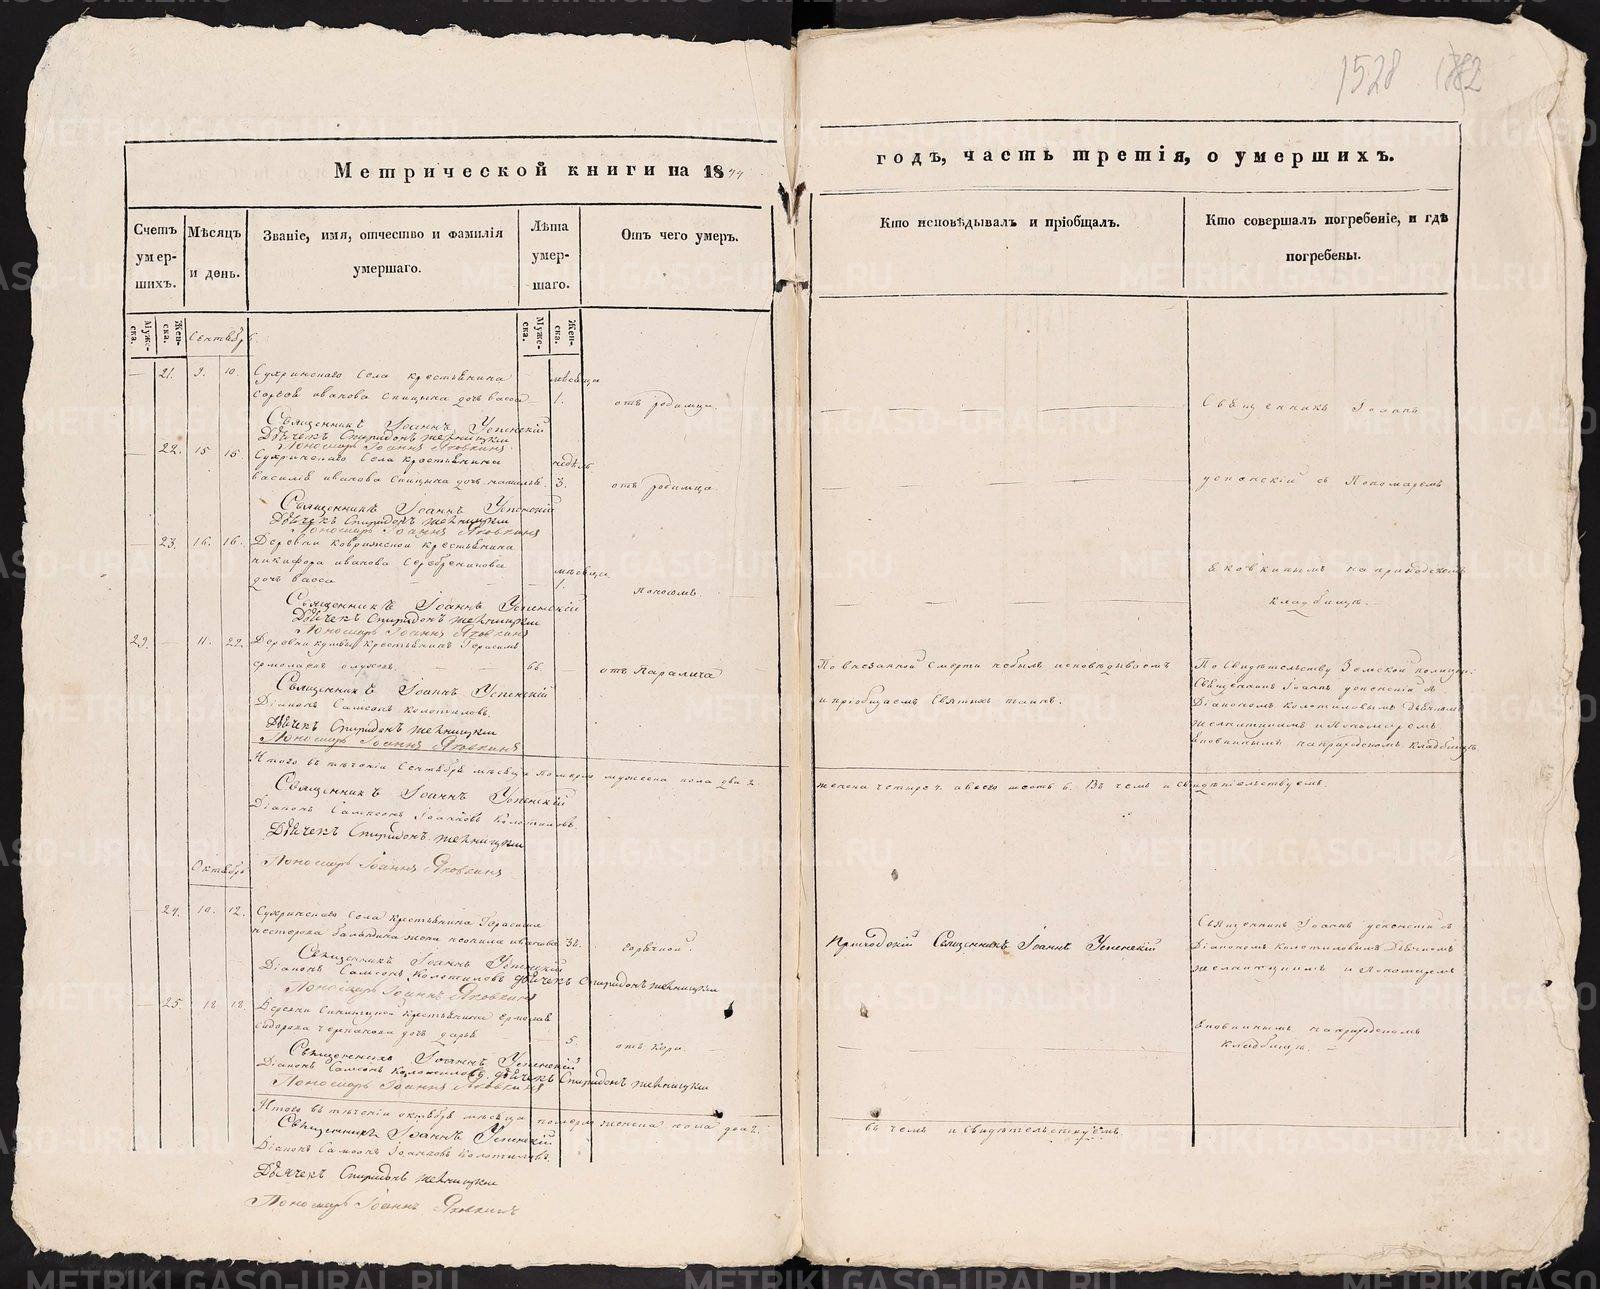 1528
Метрической книги на 1844
годъ, часть третія, о умершихъ.
Счетъ умершихъ.
Мѣсяцъ и день.
Званіе, имя, отчество и фамилія умершаго.
Лѣта умершаго.
Отъ чего умеръ.
Кто исповѣдывалъ и пріобщалъ.
Кто совершалъ погребеніе, и гдѣ погребены.
Мужеска.
Женска.
Мужеска.
Женска.
Сентябрь
21. 9. 10. Сухринскаго Села крестьянина
иванова Спицына дочь васса
мѣсяца 1.
отъ родимца.
Священникъ Іоаннъ Успенскій
Дьячекъ Спиридонъ
Пономарь Іоаннъ Яковкинъ
22. 15 16 Сухринскаго Села крестьянина
василія иванова Спицына дочь наталья
недѣль 3.
отъ родимца
Священникъ Іоаннъ Успенскій
Дьячекъ Спиридонъ
Пономарь Іоаннъ Яковкинъ
23. 16. 16. Деревни крестьянина
никифора иванова Серебреникова
дочь васса
мѣсяца 1.
поносомъ.
Священникъ Іоаннъ Успенскій
Дьячекъ Спиридонъ
Пономарь Іоаннъ Яковкинъ
Священникъ Іоаннъ
успенскій съ Пономаремъ
Яковкинымъ на приходскомъ
кладбищѣ.
29. 11. 22. Деревни крестьянинъ Герасимъ
ермолаевъ 66.
отъ Паралича
Священникъ Іоаннъ Успенскій
Діаконъ Самсонъ Колотиловъ.
Дьячекъ Спиридонъ
Пономарь Іоаннъ Яковкинъ
По внезапной Смерти небылъ исповѣдываемъ
и пріобщаемъ Святыхъ таинъ.
По Свидѣтельству Земской полиции
Священникъ Іоаннъ успенскій съ
Діакономъ Колотиловымъ Дьячкомъ
и Пономаремъ
Яковкинымъ на приходскомъ кладбищѣ
Итого въ теченіи Сентября мѣсяца померло мужеска пола два 2.
женска четыре 4. а всего шесть 6. Въ чемъ и свидѣтельствуемъ.
Священникъ Іоаннъ Успенскій
Діаконъ Самсонъ Іоанновъ Колотиловъ.
Дьячекъ Спиридонъ
Пономарь Іоаннъ Яковкинъ
Октябрь
24. 10. 12. Сухринскаго Села крестьянина Герасима
нестерова жена иванова 32.
горячкой.
Священникъ Іоаннъ Успенскій
Діаконъ Самсонъ Колотиловъ Дьячекъ Спиридонъ
Пономарь Іоаннъ Яковкинъ
Приходскій Священникъ Іоаннъ Успенскій
Священникъ Іоаннъ успенскій съ
Діакономъ Колотиловымъ Дьячкомъ
и Пономаремъ
Яковкинымъ на приходскомъ
кладбищѣ.
25. 18 18. Деревни крестьянина Ермолая
сидорова дочь дарья
5.
отъ Кори.
Священникъ Іоаннъ Успенскій
Діаконъ Самсонъ Колотиловъ Дьячекъ Спиридонъ
Пономарь Іоаннъ Яковкинъ
Итого въ теченіи октября мѣсяца померло женска пола два 2.
въ чемъ и Свидѣтельствуемъ.
Священникъ Іоаннъ Успенскій
Діаконъ Самсонъ Іоанновъ Колотиловъ
Дьячекъ Спиридонъ
Пономарь Іоаннъ Яковкинъ
METRIKI.GASO-URAL.RU